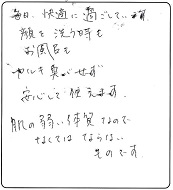 毎日、快適に過ごしています。
顔を洗う時も
お風呂も
安心して使えます。
肌の弱い体質なので
なくてはならない
ものです。